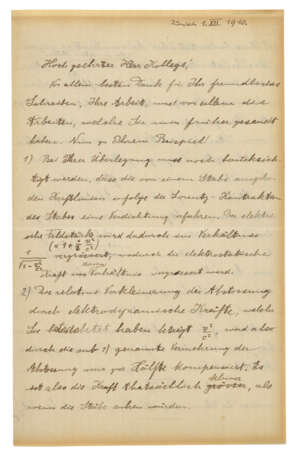 Zürich 1. XII. 1910.
Hoch geehrter Herr Kollege!
Vor allem besten Dank für Ihr freundliches
Schreiben, Ihre Arbeit, und vor allem die
Arbeiten, welche Sie mir früher gesandt
haben. Nun zu Ihrem Beispiel!
1) Bei Ihrer Überlegung muss noch berücksich-
tigt werden, dass die von einem Stabe ausgehen-
den Kraftlinien infolge der Lorentz-Kontraktion
des Stabes eine Verdichtung erfahren. Die elektri-
sche Feldstärke wird dadurch im Verhältnis
vergrössert, wodurch die elektrostatische
Kraft im Verhältnis vergrössert wird.
2) Die relative Verkleinerung der Abstossung
durch elektrodynamische Kräfte, welche
Sie haben beträgt v²/c², wird also
durch die sub 1) genannte Vermehrung der
Abstossung nur zur Hälfte kompensiert. Es
ist also die Kraft thatsächlich kleiner, als
wenn die Stäbe ruhen würden.